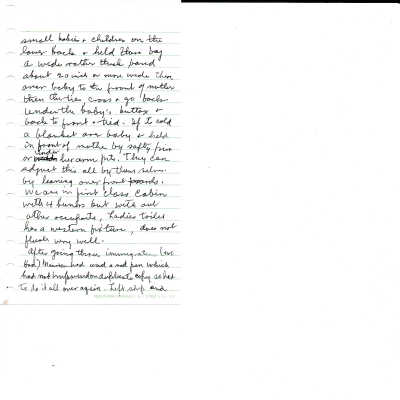 small babies & children on the
lower back & held there by
a wide rather thick band
about 20 inches or more wide then
over baby to the front of mother
then the ties cross & go back
under the baby's buttox &
back to front & tied. If its cold
a blanket over baby & held
in front of mothe by safty pin
or under her arm pits. They can
adjust this all by them selves
by leaning over front
We are in first class Cabin
with 4 bunks but with out
other occupants, Ladies toilet
has a western fixture, does not
flush very well.
After going throu immigration (not
bad) had used a red pen which
had not on duplicate copy so had
to do it all over again. Left ship and